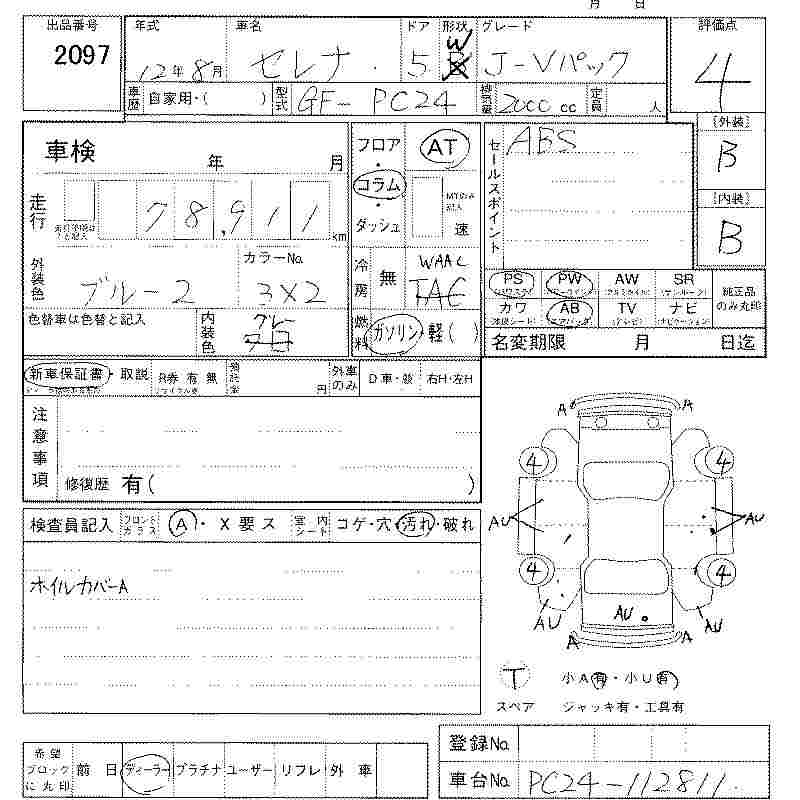 月 日
出品番号 年式 車名 ドア 形状 グレード 評価点
2097 12年8月 セレナ 5 W J-Vパック 4
車歴 自家用・( ) 型式 GF-PC24 排気量 2000 cc 定員 人
[外装]
B
[内装]
B
車検 年 月
フロア・コラム・ダッシュ AT
MTのみ記入 速
セールスポイント ABS
走行 78,911 km
外装色 ブルー2 カラーNo. 3X2
色替車は色替と記入 内装色 グレー
冷房 無 WAAC
燃料 ガソリン・軽( )
PS PW AW SR 純正品のみ丸印
カワ AB TV ナビ
名変期限 月 日迄
新車保証書・取説 R券 有 無 預託金 円 外車のみ D車・並 右H・左H
注意事項
修復歴 有( )
検査員記入 フロントガラス A・X要ス 室内シート コゲ・穴・汚れ・破れ
ホイルカバーA
A A
4 4
AU AU
4 4
AU AU AU
A A
T 小A有・小U有
スペア ジャッキ有・工具有
希望ブロックに丸印 前日 ディーラー プラチナ ユーザー リフレ 外車
登録No.
車台No. PC24-112811